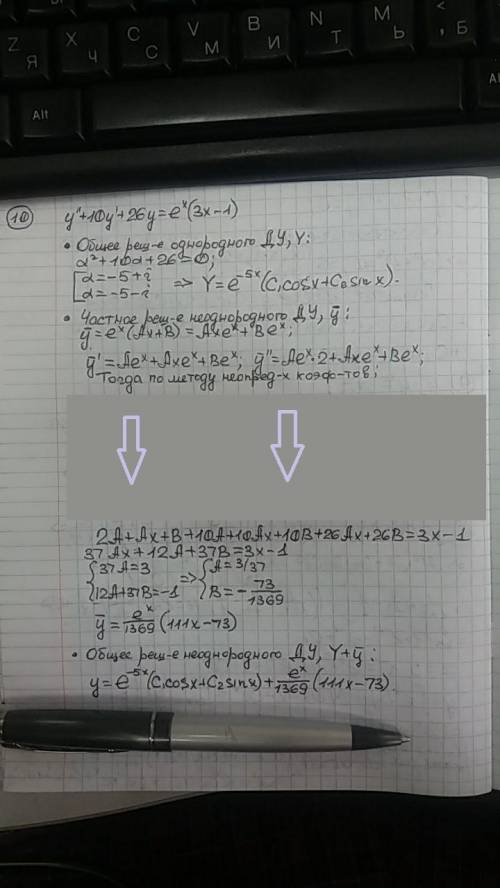 Z Я
X Ч
C С
V М
B И
N Т
M Ь
< , Б
Alt
Alt
10
y''+10y'+26y=eˣ(3x-1)
• Общее реш-е однородного ДУ, Y:
α²+10α+26=0;
[α=-5+i
[α=-5-i => Y=e⁻⁵ˣ(C₁cosx+C₂sinx).
• Частное реш-е неоднородного ДУ, ȳ:
ȳ=eˣ(Ax+B)=Axeˣ+Beˣ;
ȳ'=Aeˣ+Axeˣ+Beˣ; ȳ''=Aeˣ·2+Axeˣ+Beˣ;
Тогда по методу неопред-х коэф-тов:
2A+Ax+B+10A+10Ax+10B+26Ax+26B=3x-1
37Ax+12A+37B=3x-1
{37A=3
{12A+37B=-1 => {A=3/37
{B=-73/1369
ȳ=eˣ/1369(111x-73)
• Общее реш-е неоднородного ДУ, Y+ȳ:
y=e⁻⁵ˣ(C₁cosx+C₂sinx)+eˣ/1369(111x-73).